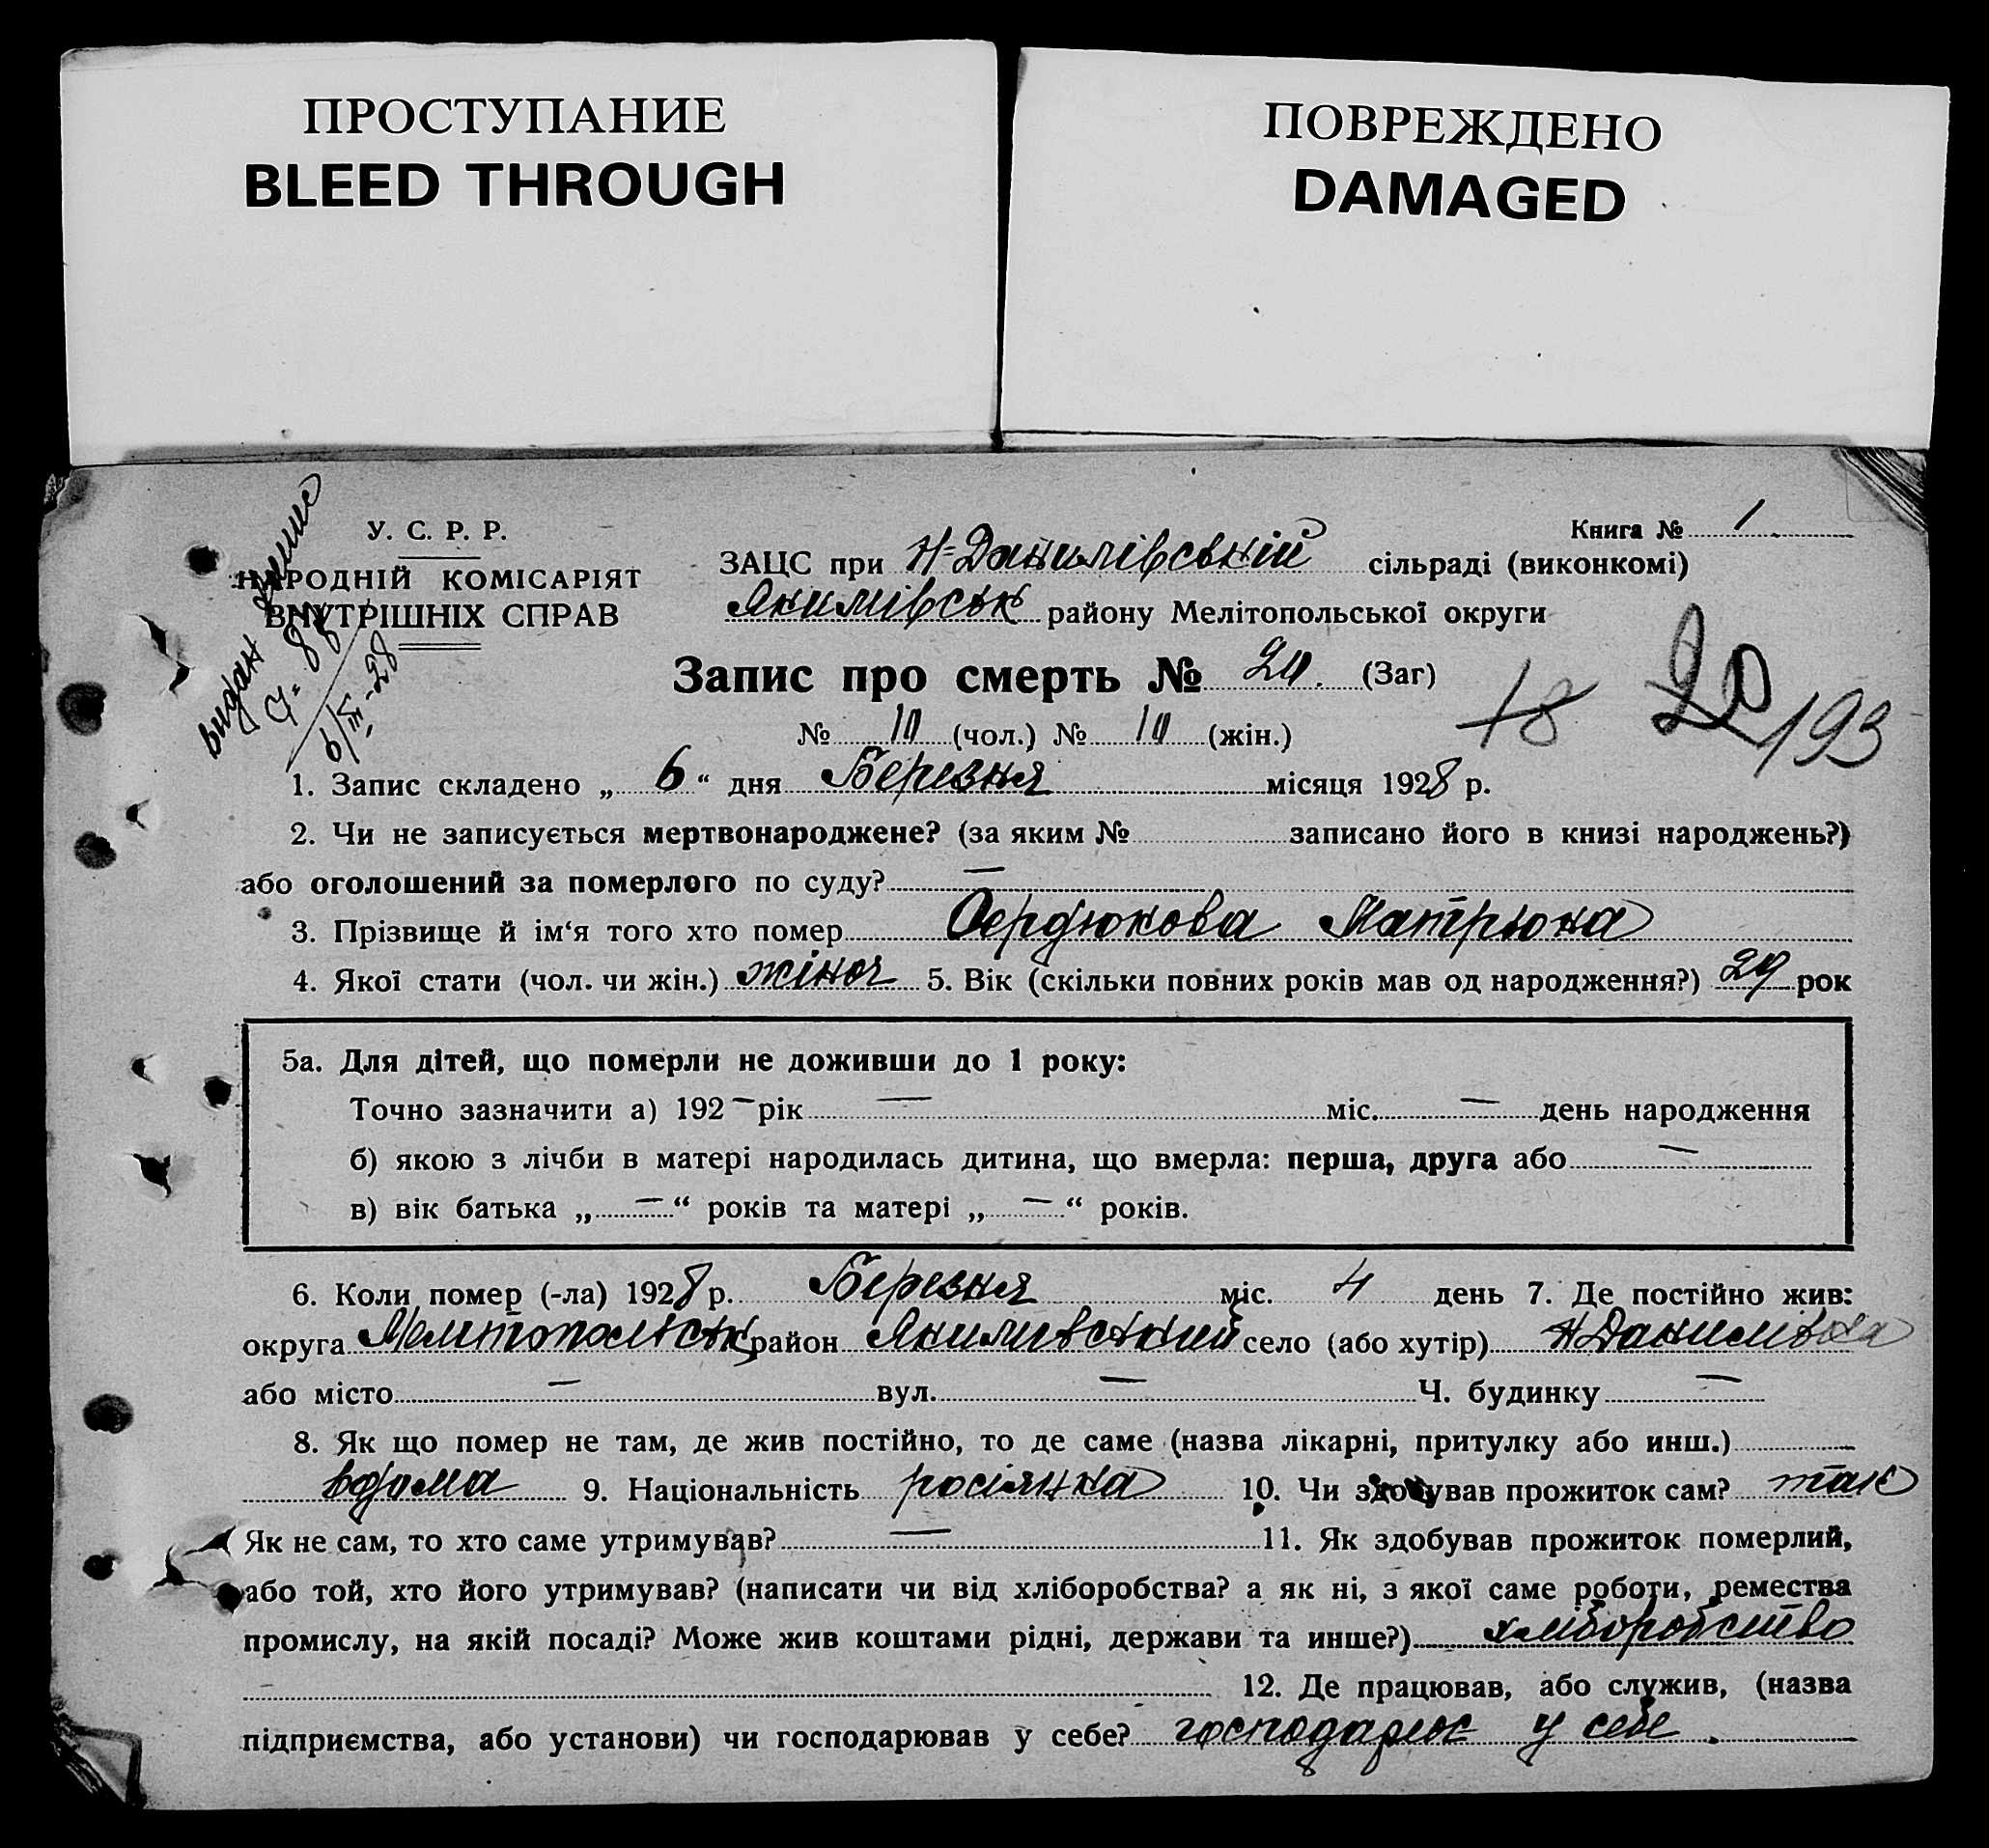 ПРОСТУПАНИЕ
BLEED THROUGH
ПОВРЕЖДЕНО
DAMAGED
У. С. Р. Р.
НАРОДНІЙ КОМІСАРІЯТ
ВНУТРІШНІХ СПРАВ
видан
6/III-28
Книга № 1
ЗАЦС при Н-Данилівській сільраді (виконкомі)
Якимівськ району Мелітопольської округи
Запис про смерть № 20. (Заг)
№ 10 (чол.) № 10 (жін.)
18 20 193
1. Запис складено „ 6 “ дня Березня місяця 1928 р.
2. Чи не записується мертвонароджене? (за яким № записано його в книзі народжень?)
або оголошений за померлого по суду? —
3. Прізвище й ім‘я того хто помер Сердюкова Матрьона
4. Якої стати (чол. чи жін.) жіноч 5. Вік (скільки повних років мав од народження?) 29 рок
5а. Для дітей, що померли не доживши до 1 року:
Точно зазначити а) 192 — рік — міс. — день народження
б) якою з лічби в матері народилась дитина, що вмерла: перша, друга або —
в) вік батька „ — “ років та матері „ — “ років.
6. Коли помер (-ла) 1928 р. Березня міс. 4 день 7. Де постійно жив:
округа Мелітопольськ район Якимівський село (або хутір) Н Данилівка
або місто — вул. — Ч. будинку —
8. Як що помер не там, де жив постійно, то де саме (назва лікарні, притулку або инш.)
вдома 9. Національність росіянка 10. Чи здобував прожиток сам? так
Як не сам, то хто саме утримував? — 11. Як здобував прожиток померлий,
або той, хто його утримував? (написати чи від хліборобства? а як ні, з якої саме роботи, ремества
промислу, на якій посаді? Може жив коштами рідні, держави та инше?) хліборобство
12. Де працював, або служив, (назва
підприємства, або установи) чи господарював у себе? господарює у себе.